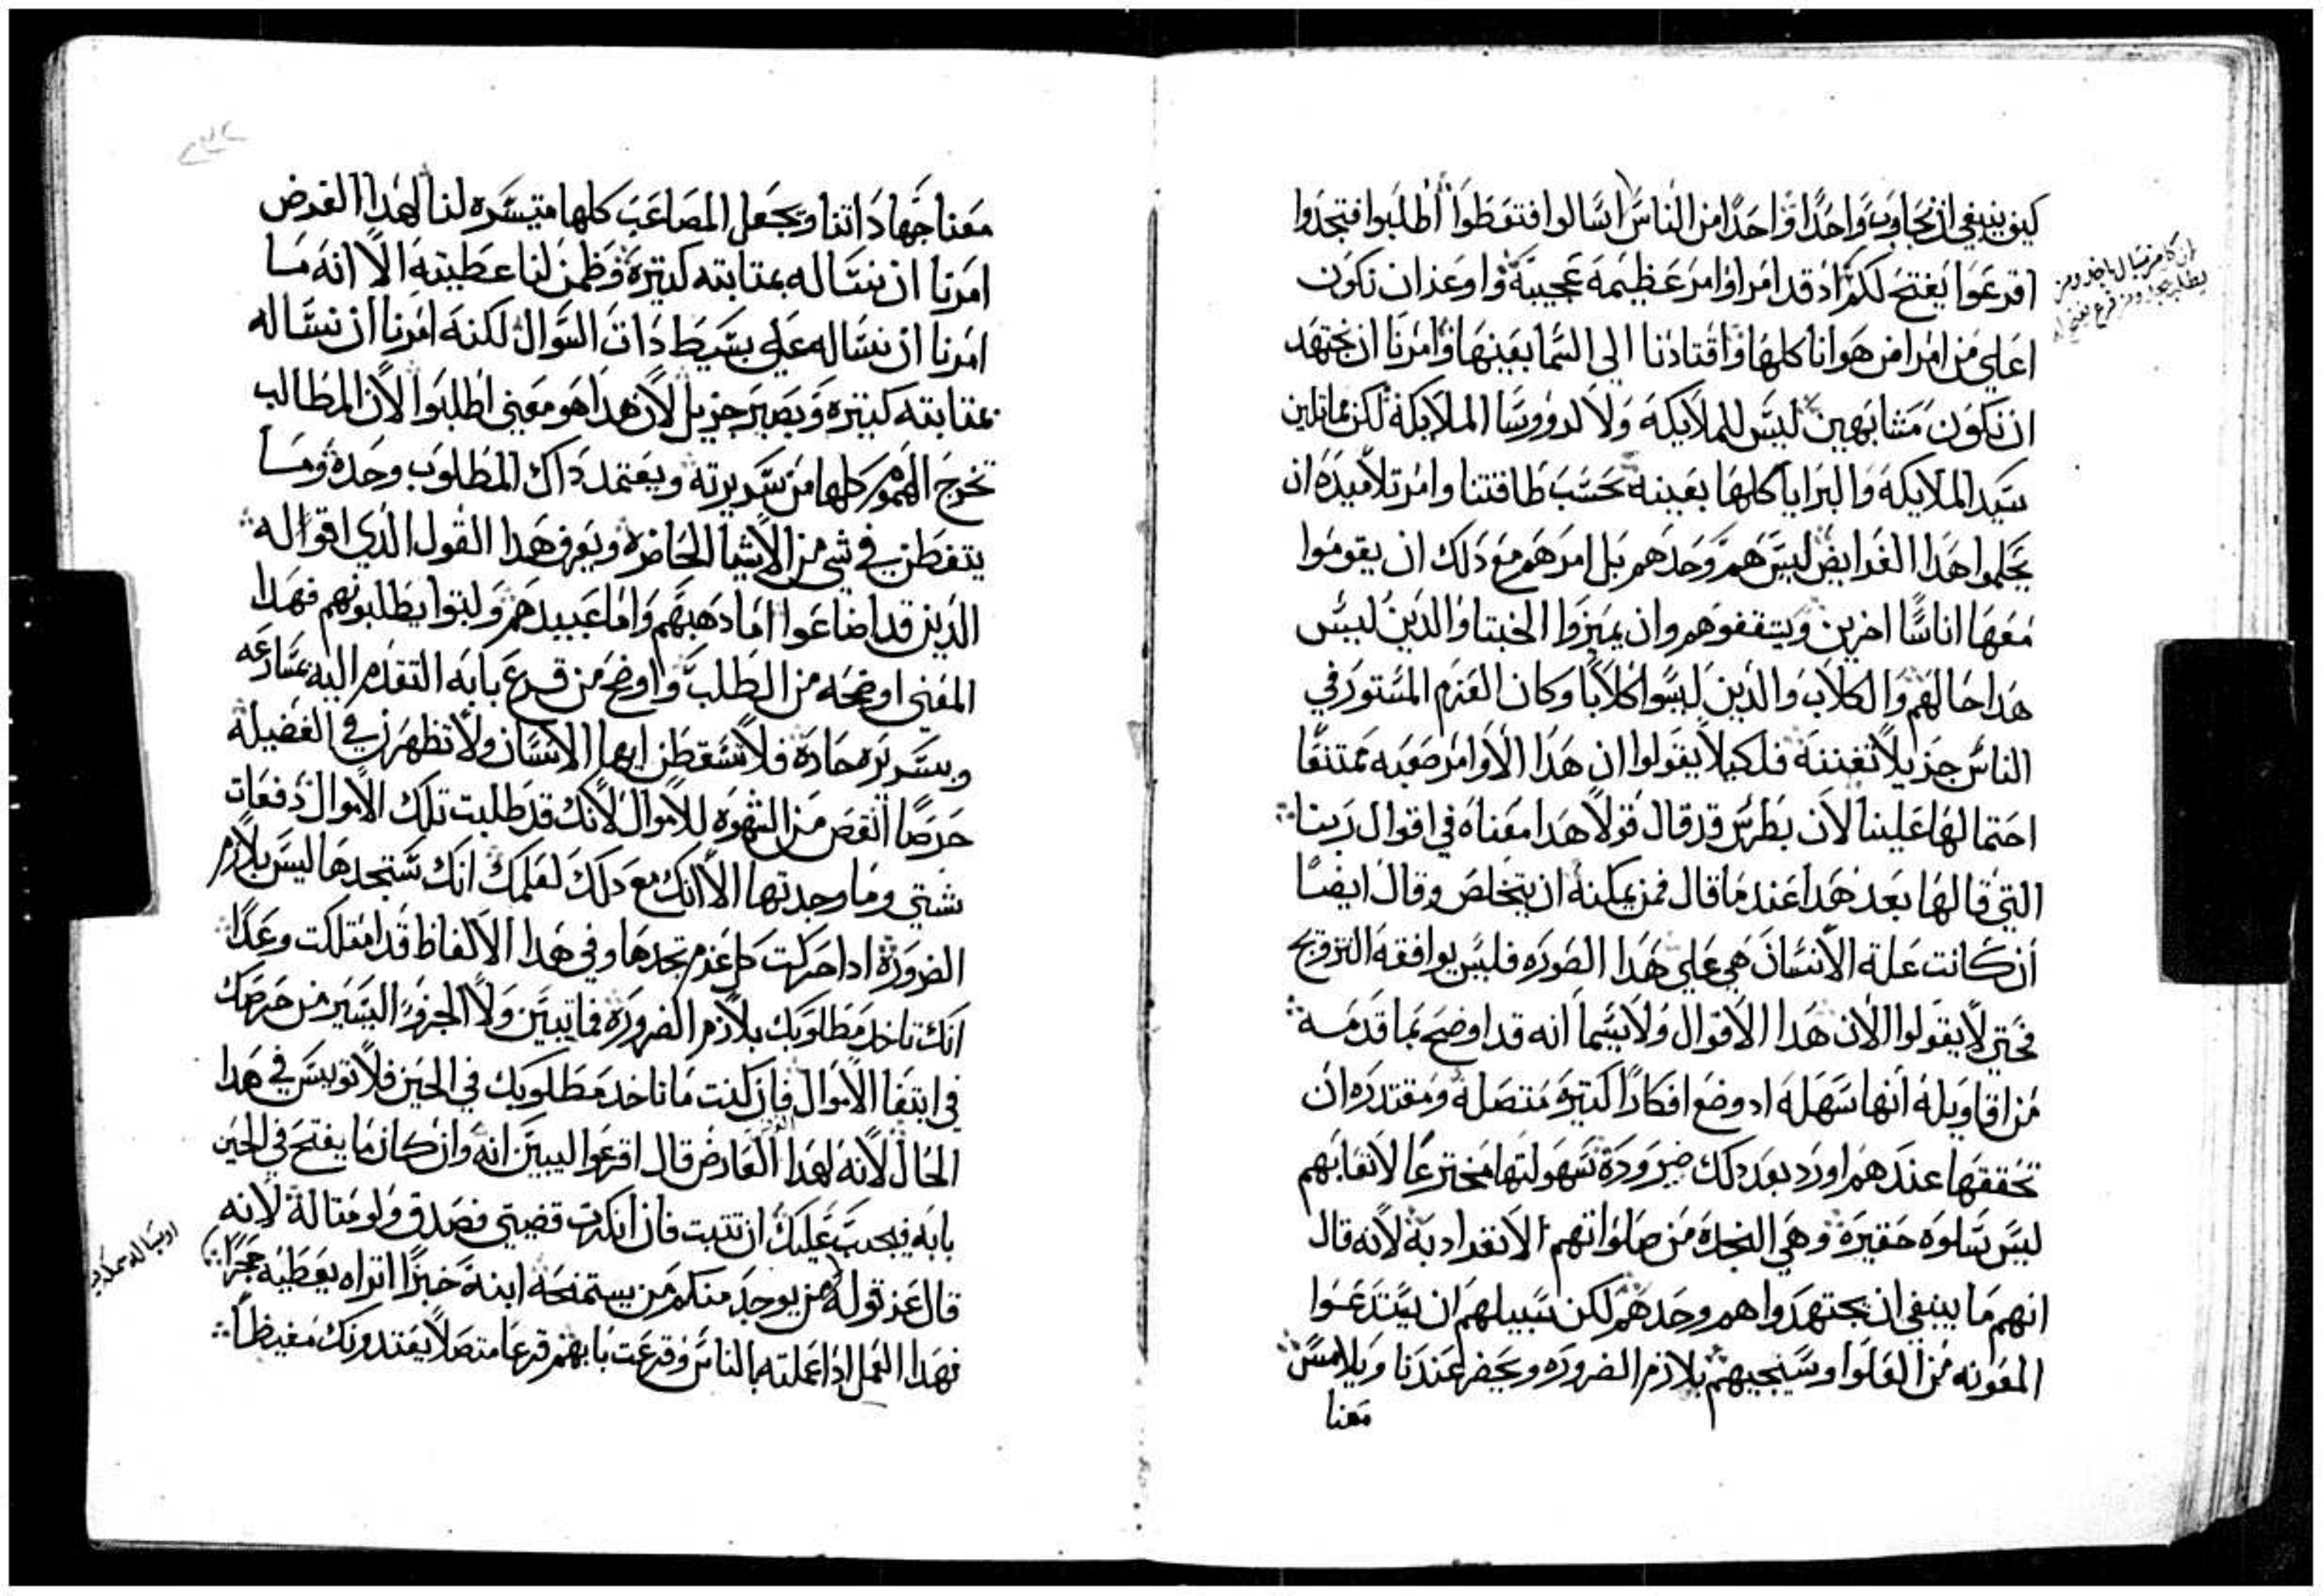 كيف ينبغي ان نجاوب واحدًا واحدًا من الناس اسالوا فتعطوا اطلبوا فتجدوا
اقرعوا يفتح لكم اد قد امر اوامر عظيمه عجيبة واوعز ان نكون
اعلي من امرا من هوانا كلها واقتادنا الي السما بعينها وامرنا ان نجتهد
ان نكون مشابهين ليس للملايكه ولا لروووسا الملايكة لكن مماتلين
سيد الملايكه والبرايا كلها بعينه بحسب طاقتنا وامر تلاميده ان
يحلموا هدا الفرايض ليس هم وحدهم بل امرهم مع دلك ان يقوموا
معها اناسًا اخرين ويتقفوهم وان يميزوا الخبتا والدين ليس
هدا حالهم والكلاب والدين ليسوا كلابًا وكان العزم المستور في
الناس جزيلاً تفننه فلكيلا يقولوا ان هدا الاوامر صعبه ممتنعًا
احتمالها علينا لان بطرس قد قال قولاً هدا معناه في اقوال ربنا
التي قالها بعد هدا عند ما قال فمن يمكنه ان يتخلص وقال ايضًا
ان كانت علة الانسان هي علي هدا الصوره فليس يوافقه التزويج
فحتي لا يقولوا الان هدا الاقوال ولا سيما انه قد اوضح بما قدمه
من اقاويله انها سهله اد وضع افكارًا كتيرة متصله ومقتدره ان
تحققها عندهم اورد بعد دلك ضرورة سهولتها مخترعًا لاتعابهم
ليس سلوه حقيرة وهي النجدة من صلواتهم الانفراد به لانه قال
انهم ما ينبغي ان يجتهدوا هم وحدهم لكن سبيلهم ان يستدعوا
المعونه من العلوا وستجيهم بلازم الضروره ويحضر عندنا ويلامس
معنا
ان كل من يسال ياخد ومن
يطلب يجد ومن قرع يفتح له
معنا جهاداتنا ويجعل المصاعب كلها متيسره لنا لهدا الغرض
امرنا ان نساله بمتابته كتيرة وظمن لنا عطيته الا انه ما
امرنا ان نساله علي بسيط دات السوال لكنه امرنا ان نساله
بمتابته كتيره وبصبر جزيل لان هدا هو معني اطلبوا لان المطالب
تخرج الهموم كلها من سريرته ويعتمد داك المطلوب وحده وما
يتفطن في شي من الاشيا الحاضره ويعرف هدا القول الدي اقواله
الدين قد اضاعوا اما دهبهم واما عبيدهم ولبتوا يطلبونهم فهدا
المعني اوضحه من الطلب واوضح من قرع بابه التقدم اليه بمسارعه
وبسريره حاده فلا تسقطن ايها الانسان ولا تظهرن في الفضيلة
حرصًا انقص من الشهوه للاموال لانك قد طلبت تلك الاموال دفعات
شتي وما وجدتها الا انك مع دلك لعلمك انك ستجدها ليس بلازم
الضرورة ادا حركت كل عزم تجدها وفي هدا الالفاظ قد امتلكت وعدًا
انك تاخد مطلوبك بلازم الضرورة فما تبين ولا الجزو اليسير من حرصك
في ابتغا الاموال فان كنت ما تاخد مطلوبك في الحين فلا توييس في هدا
الحال لانه لهدا العارض قال اقرعوا ليبين انه وان كان ما يفتح في الحين
بابه فيجب عليك ان تتبت فان انكرت قضيتي فصدق ولو متالة لانه
قال عز قوله من يوجد منكم من يستمنحه ابنه خبزًا اتراه يعطيه حجرًا
فهدا العمل ادا عملته بالناس وقرعت بابهم قرعًا متصلاً يعتدونك مغيظًا
او يساله سمكة